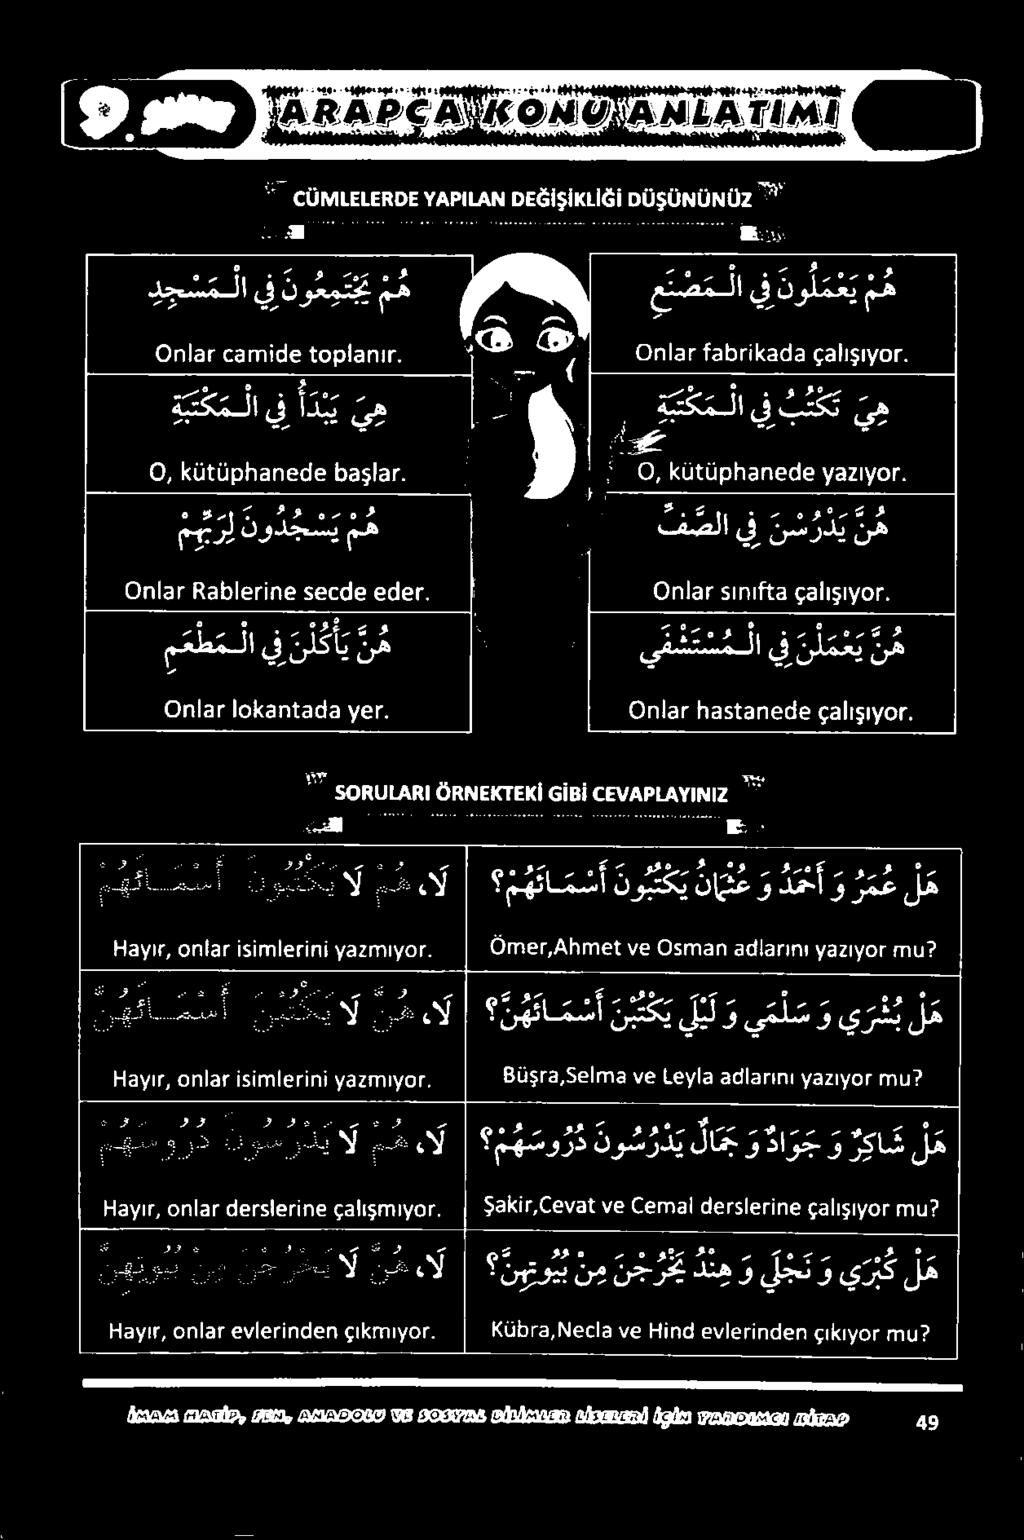 9.
ARAPÇA KONU ANLATIMI
CÜMLELERDE YAPILAN DEĞİŞİKLİĞİ DÜŞÜNÜNÜZ
هُمْ يَعْمَلُونَ فِي الْـمَصْنَعِ
Onlar fabrikada çalışıyor.
هُمْ يَجْتَمِعُونَ فِي الْـمَسْجِدِ
Onlar camide toplanır.
هِيَ تَكْتُبُ فِي الْـمَكْتَبَةِ
O, kütüphanede yazıyor.
هِيَ يَبْدَأُ فِي الْـمَكْتَبَةِ
O, kütüphanede başlar.
هُنَّ يَدْرُسْنَ فِي الصَّفِّ
Onlar sınıfta çalışıyor.
هُمْ يَسْجُدُونَ لِرَبِّهِمْ
Onlar Rablerine secde eder.
هُنَّ يَعْمَلْنَ فِي الْـمُسْتَشْفَي
Onlar hastanede çalışıyor.
هُنَّ يَأْكُلْنَ فِي الْـمَطْعَمِ
Onlar lokantada yer.
SORULARI ÖRNEKTEKİ GİBİ CEVAPLAYINIZ
هَلْ عُمَرُ وَ أَحْمَدُ وَ عُثْمَانُ يَكْتُبُونَ أَسْمَـائَهُمْ؟
Ömer,Ahmet ve Osman adlarını yazıyor mu?
لَا، هُمْ لَا يَكْتُبُونَ أَسْمَـائَهُمْ
Hayır, onlar isimlerini yazmıyor.
هَلْ بُشْرَي وَ سَلْمَي وَ لَيْلَي يَكْتُبْنَ أَسْمَـائَهُنَّ؟
Büşra,Selma ve Leyla adlarını yazıyor mu?
لَا، هُنَّ لَا يَكْتُبْنَ أَسْمَـائَهُنَّ
Hayır, onlar isimlerini yazmıyor.
هَلْ شَاكِرٌ وَ جَوَادٌ وَ جَمَالٌ يَدْرُسُونَ دُرُوسَهُمْ؟
Şakir,Cevat ve Cemal derslerine çalışıyor mu?
لَا، هُمْ لَا يَدْرُسُونَ دُرُوسَهُمْ
Hayır, onlar derslerine çalışmıyor.
هَلْ كُبْرَي وَ نَجْلَي وَ هِنْدُ يَخْرُجْنَ مِنْ بُيُوتِهِنَّ؟
Kübra,Necla ve Hind evlerinden çıkıyor mu?
لَا، هُنَّ لَا يَخْرُجْنَ مِنْ بُيُوتِهِنَّ
Hayır, onlar evlerinden çıkmıyor.
İMAM HATİP, FEN, ANADOLU VE SOSYAL BİLİMLER LİSELERİ İÇİN YARDIMCI KİTAP
49